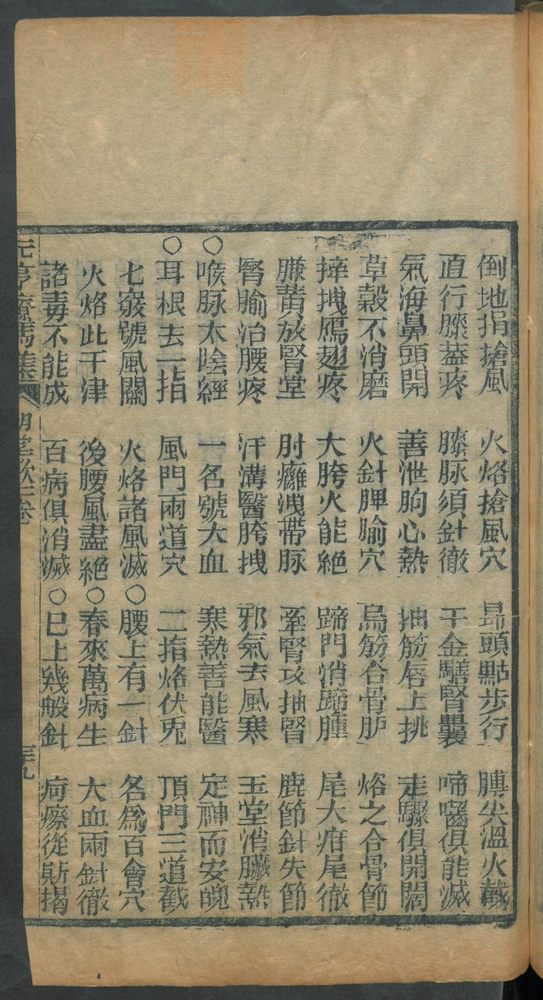 倒地捐搶風　火烙搶風穴　昻頭點步行　膊尖溫火蔵
直行膝蓋疼　膝脉須針徹　千金騸腎𡈽　啼嚙俱能滅
氣海鼻頭開　善泄胸心熱　抽筋唇上挑　走驟俱開闊
草穀不消磨　火針脾腧穴　烏筋合骨胪　烙之合骨節
摔拽鴈翅疼　大胯火能絕　蹄門消蹄腫　尾大疳尾徹
臁黄放腎堂　肘癰洩帶脉　牽腎攻抽腎　鹿節針失節
腎腧治腰疼　汗溝醫胯拽　邪氣去風寒　玉堂消臟熱
○喉脉太陰經　一名號大血　寒熱善能醫　定神而安魄
○耳根去一指　風門兩道穴　二指烙伏兎　頂門三道截
七竅號風關　火烙諸風滅　○腰上有一針　各爲百會穴
火烙此干津　後腰風盡絕　○春來萬病生　大血兩針徹
諸毒不能成　百病俱消滅　○已上幾般針　疴瘵從斯揭
元亨療馬集　卷　三十九